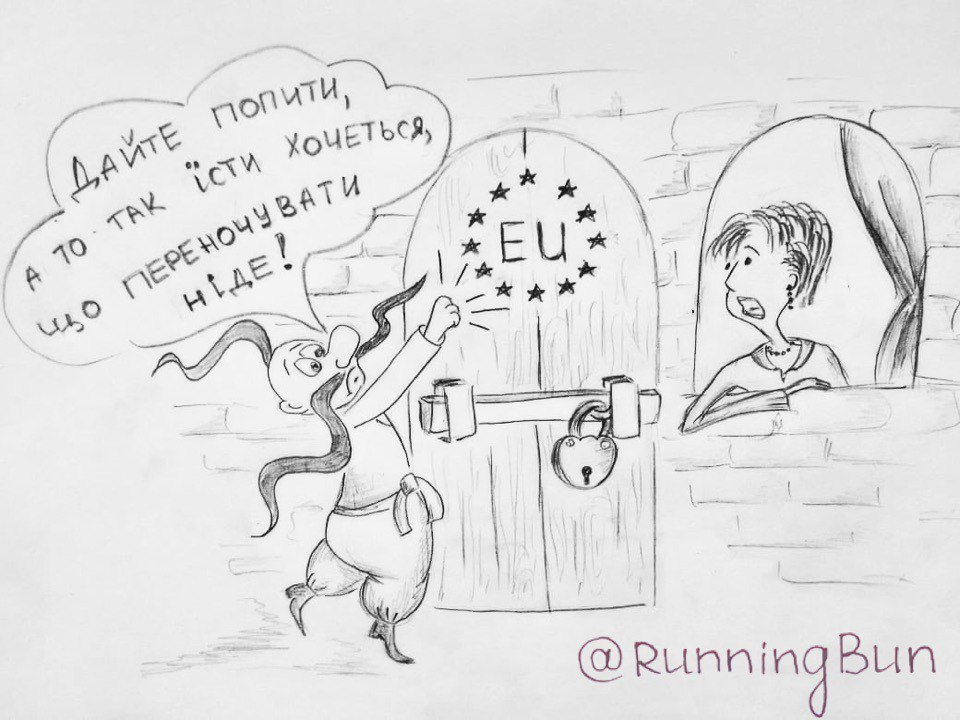 ДАЙТЕ ПОПИТИ,
А ТО ТАК ЇСТИ ХОЧЕТЬСЯ,
ЩО ПЕРЕНОЧУВАТИ
НІДЕ!
EU
@RunningBun